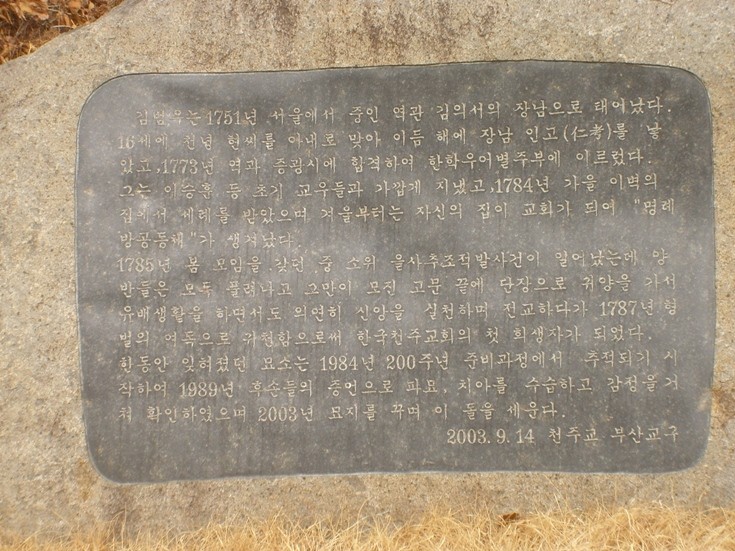 김범우는 1751년 서울에서 중인 역관 김의서의 장남으로 태어났다.
16세에 천녕 현씨를 아내로 맞아 이듬 해에 장남 인고(仁考)를 낳
았고, 1773년 역과 증광시에 합격하여 한학우어별주부에 이르렀다.
그는 이승훈 등 초기 교우들과 가깝게 지냈고, 1784년 가을 이벽의
집에서 세례를 받았으며 겨울부터는 자신의 집이 교회가 되어 "명례
방공동체"가 생겨났다.
1785년 봄 모임을 갖던 중 소위 을사추조적발사건이 일어났는데 양
반들은 모두 풀려나고 그만이 모진 고문 끝에 단장으로 귀양을 가서
유배생활을 하면서도 의연히 신앙을 실천하며 전교하다가 1787년 형
벌의 여독으로 귀천함으로써 한국천주교회의 첫 희생자가 되었다.
한동안 잊혀졌던 묘소는 1984년 200주년 준비과정에서 추적되기 시
작하여 1989년 후손들의 증언으로 파묘, 치아를 수습하고 감정을 거
쳐 확인하였으며 2003년 묘지를 꾸며 이 돌을 세운다.
2003. 9. 14 천주교 부산교구